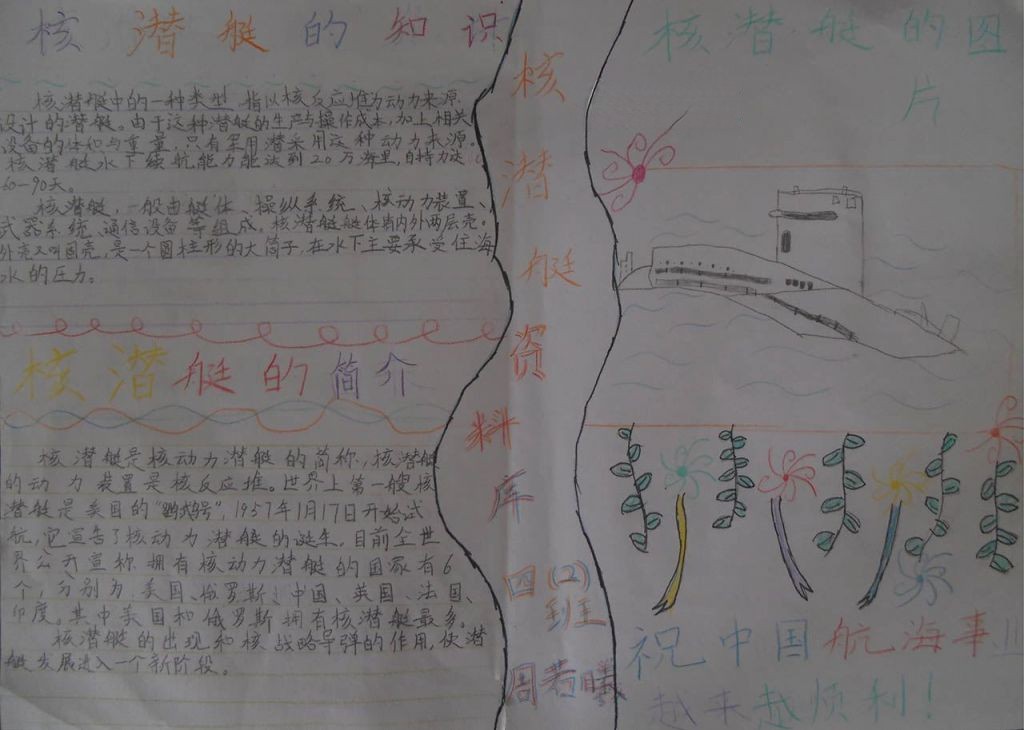 核潜艇的知识
核潜艇中的一种类型,指以核反应堆为动力来源
设计的潜艇。由于这种潜艇的生产与操作成本,加上相关
设备的体积与重量,只有军用潜采用这种动力来源。
核潜艇水下续航能力能达到20万海里,自持力达
60-90天。
核潜艇,一般由艇体、操纵系统、核动力装置、
武器系统、通信设备等组成。核潜艇艇体内外两层壳。
外壳又叫固壳,是一个圆柱形的大筒子,在水下主要承受住海
水的压力。
核潜艇的简介
核潜艇是核动力潜艇的简称,核潜艇
的动力装置是核反应堆。世界上第一艘核
潜艇是美国的“鹦鹉号”,1957年1月17日开始试
航,它宣告了核动力潜艇的诞生。目前全世
界公开宣称拥有核动力潜艇的国家有6
个,分别为:美国、俄罗斯、中国、英国、法国、
印度。其中美国和俄罗斯拥有核潜艇最多。
核潜艇的出现和核战略导弹的作用,使潜
艇发展进入一个新阶段。
核
潜
艇
资
料
库
四(2)
班
周若曦
核潜艇的图
片
祝中国航海事业
越来越顺利!